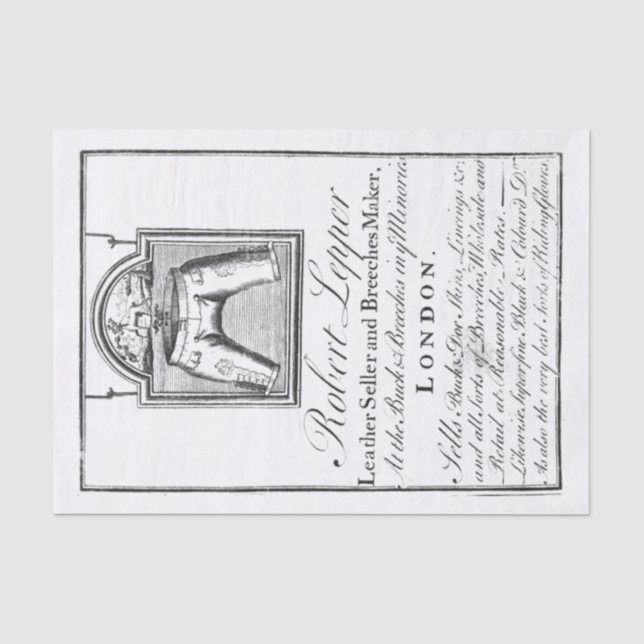 Robert Lepper
Leather Seller and Breeches Maker,
At the Buck & Breeches in yͤ Minories
LONDON.
Sells Buck & Doe Skins, Linings &c:
and all Sorts of Breeches, Wholesale and
Retail at Reasonable Rates.
Likewise, Superfine, Black & Colour'd Dͦ.
As also the very best Sorts of Riding Gloves.